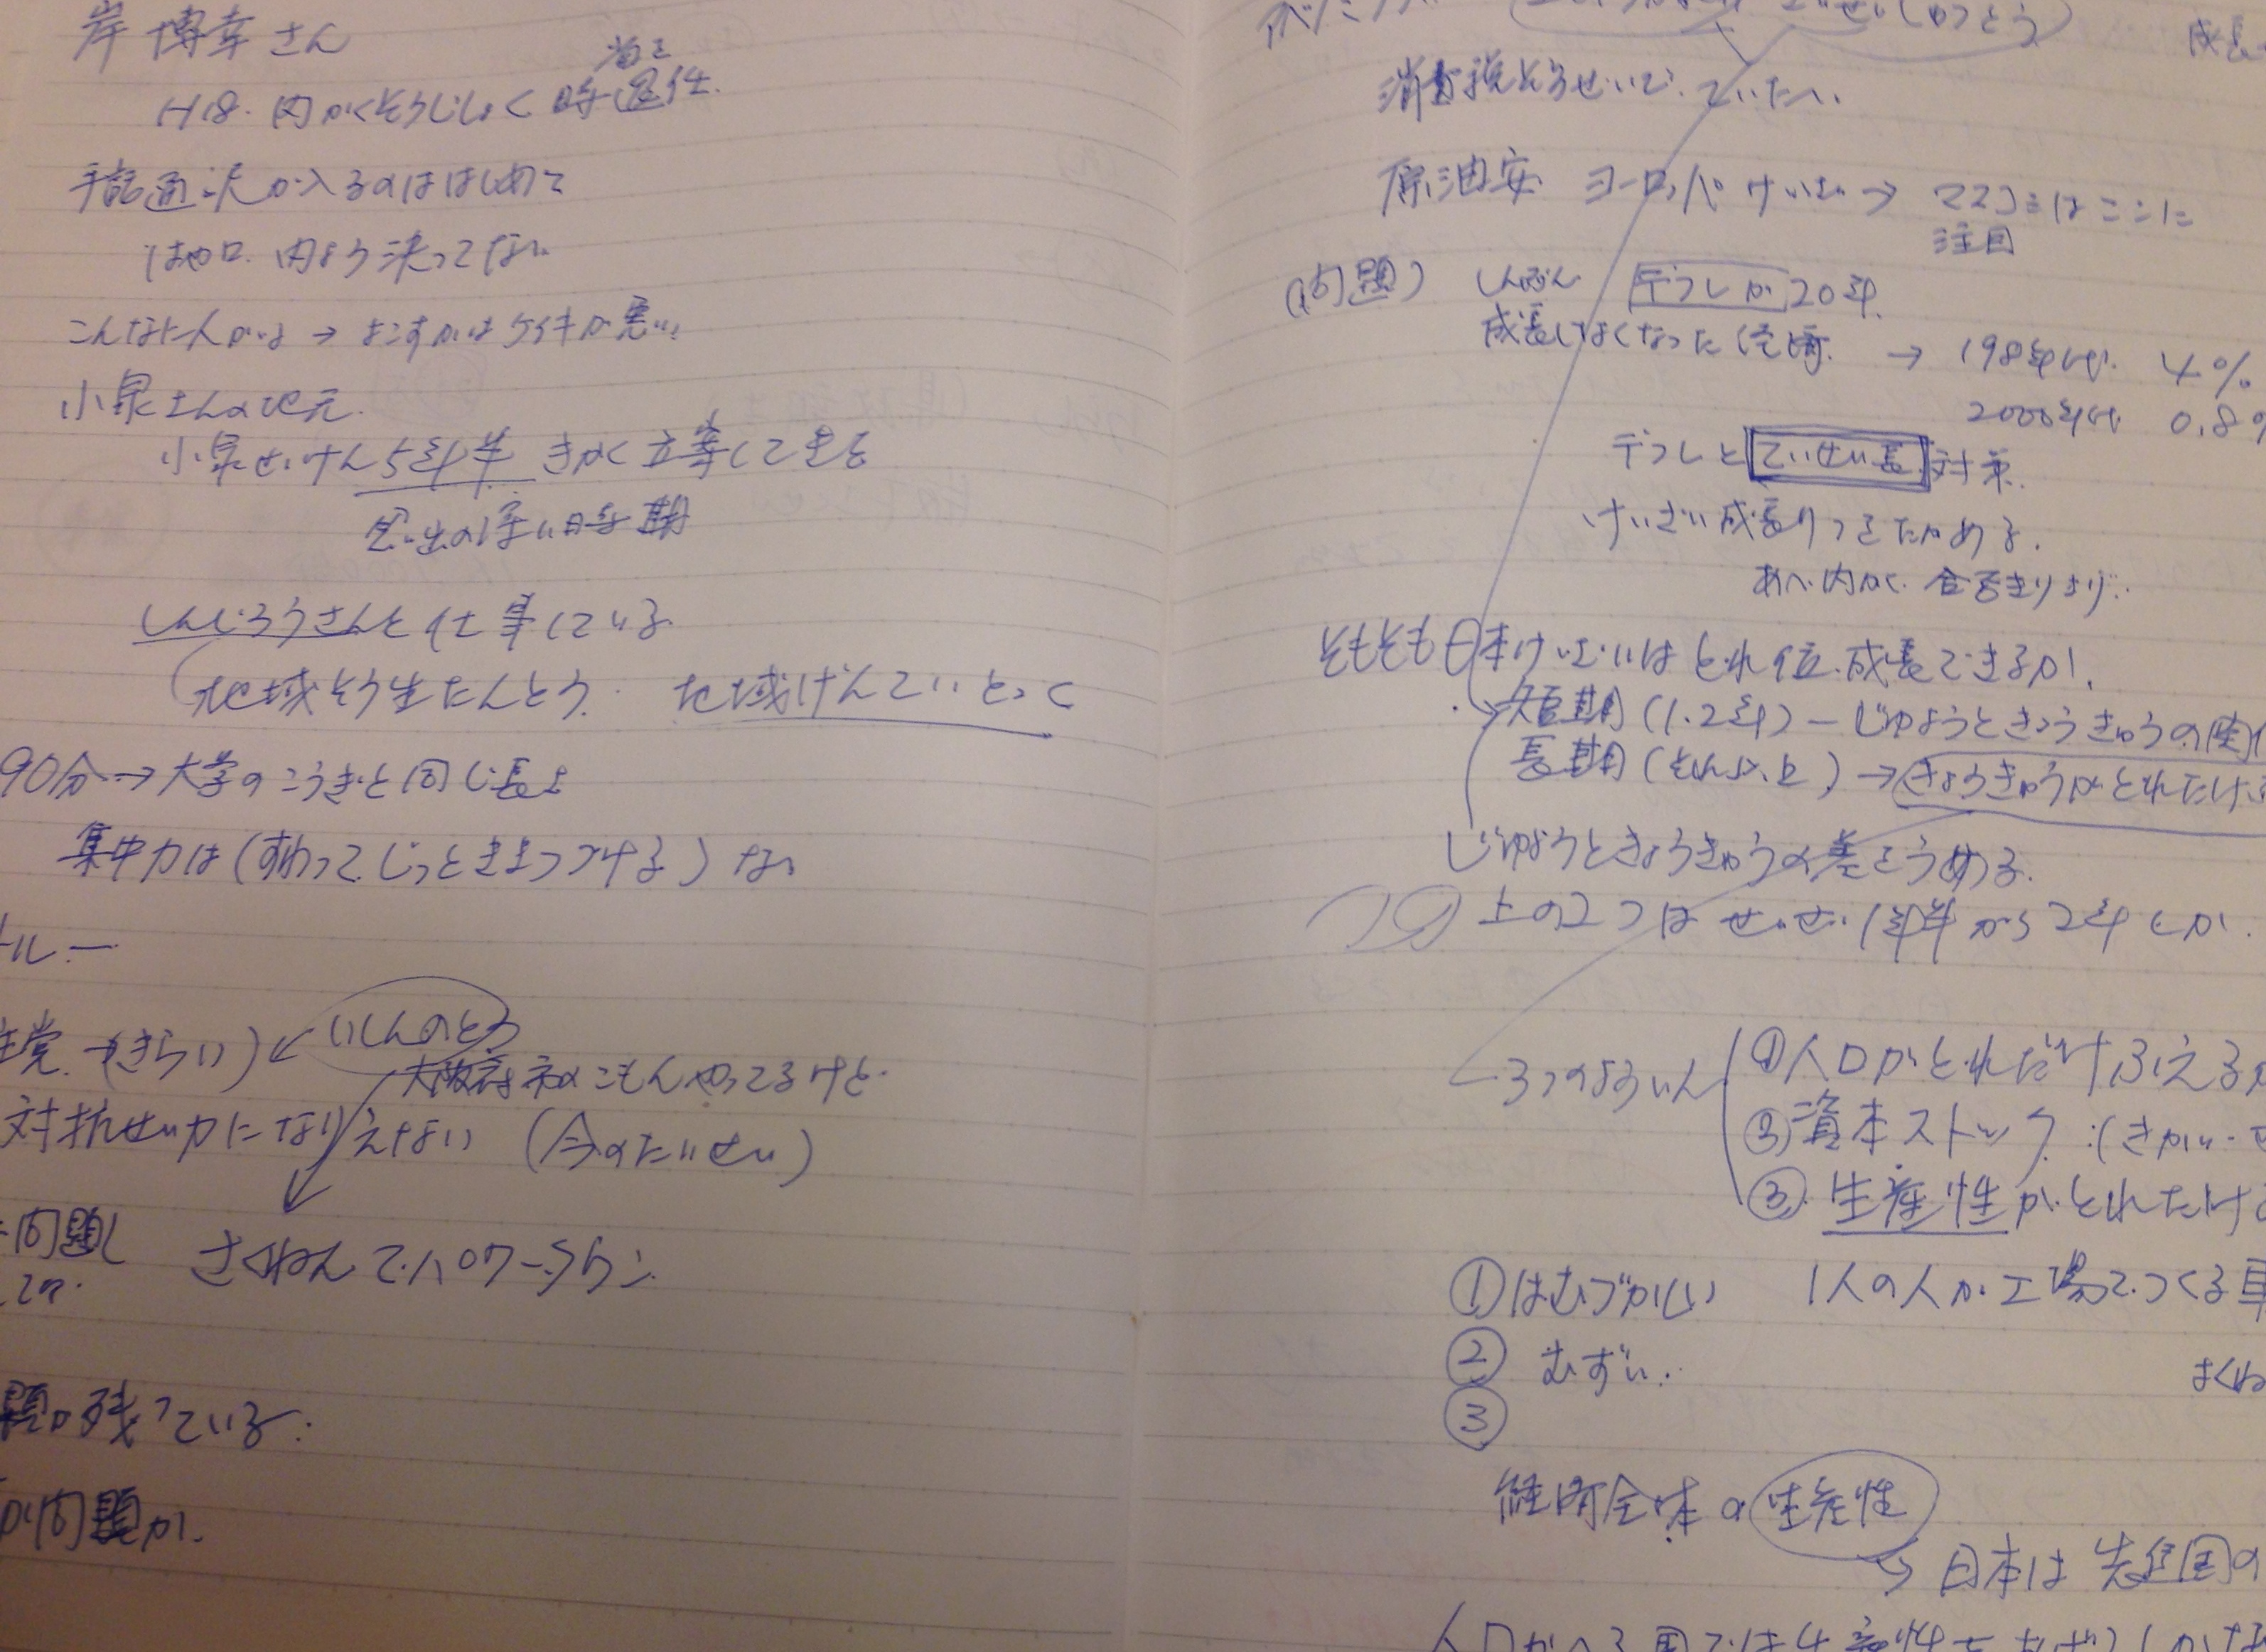 岸博幸さん
当を
H18. 内かくそうじしょく 時退任.
手話通訳が入るのははじめて
はやロ. 内よう決ってない
こんなに人がいる → よこすかはケイキが悪い
小泉さんの地元.
小泉せいけん5年半 きかく立案して
思い出の深い時期
しんじろうさんと仕事している
地域そう生たんとう. 地域げんていとっく
90分→大学のこうぎと同じ長さ
集中力は(すわってじっときまつづける) ない
トルー
主党 (きらい) ← いしんのとう
大阪府市のこもんやってるけど
対抗せい力になりえない (今のたいせい)
問題し さくねんでパワーダウン
題が残っている.
が問題か.
成長
消費税ぞうぜいで. ていたい.
原油安 ヨーロッパけいざい → マスコミはここに
注目
(問題) しんぶん デフレが20年.
成長しなくなった経済. → 198年代 4%
2000年代 0.8%
デフレとていせい長対策.
けいざい成長りつをたかめる.
あべ内かく 合否きりまり..
そもそも日本けいざいはどれ位成長できるか.
短期(1.2年) ー じゅようときょうきゅうの関
長期(それ以上) → きょうきゅうがどれだけふ
じゅようときょうきゅうの差をうめる.
上の2つはせいぜい1年半から2年しか.
3つのよういん ①人口がどれだけふえるか
②資本ストック :(きかい・せ
③. 生産性がどれだけ
①はむづかしい 1人の人が工場でつくる車
② むずい.. さくね
③
経済全体の生産性
→ 日本は先進国の
人口がへる国では生産性を